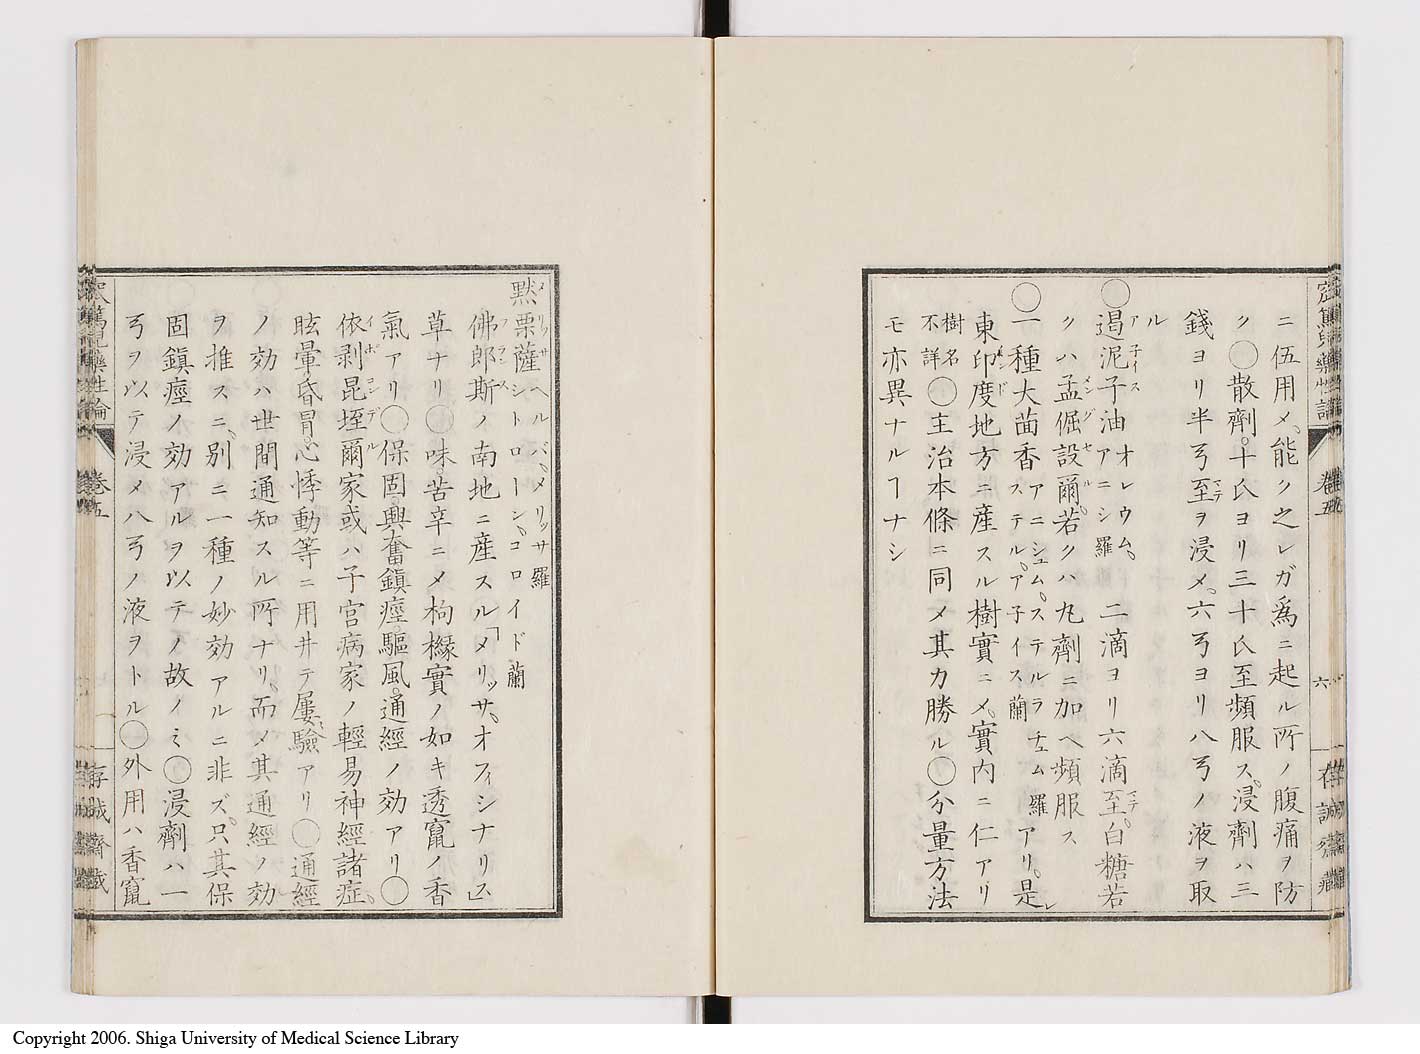 ニ伍用メ能ク之レガ爲ニ起ル所ノ腹痛ヲ防
ク〇散劑十氏ヨリ三十氏至頻服ス浸劑ハ三
錢ヨリ半弓至マテヲ浸メ六弓ヨリ八弓ノ液ヲ取
ル
〇遏泥子油アニシ羅オレウム二滴ヨリ六滴至マテ白糖若
クハ孟倔設爾メングセル若クハ丸劑ニ加ヘ頻服ス
〇一種大茴香アニシュムステルラチュム羅ステルアニイス蘭アリ是レ
東印度地方ニ産スル樹實ニメ實内ニ仁アリ
樹名不詳〇主治本條ニ同メ其力勝ル〇分量方法
モ亦異ナルヿナシ
卷五
六
存誠齋藏
黙栗薩メリッサヘルバメリッサ羅シトローンコロイド蘭
佛郎斯フランスノ南地ニ産スル「メリッサオフィシナリス」
草ナリ〇味苦辛ニメ枸櫞實ノ如キ透竄ノ香
氣アリ〇保固興奮鎮痙驅風通經ノ効アリ〇
依剥昆垤爾イポコンデル家或ハ子宮病家ノ輕易神經諸症
眩暈昏冒心悸動等ニ用井テ屢驗アリ〇通經
ノ効ハ世間通知スル所ナリ而メ其通經ノ効
ヲ推スニ別ニ一種ノ妙効アルニ非ズ只其保
固鎮痙ノ効アルヲ以テノ故ノミ〇浸劑ハ一
弓ヲ以テ浸メ八弓ノ液ヲトル〇外用ハ香竄
藥性論
卷五
存誠齋藏
Copyright 2006. Shiga University of Medical Science Library